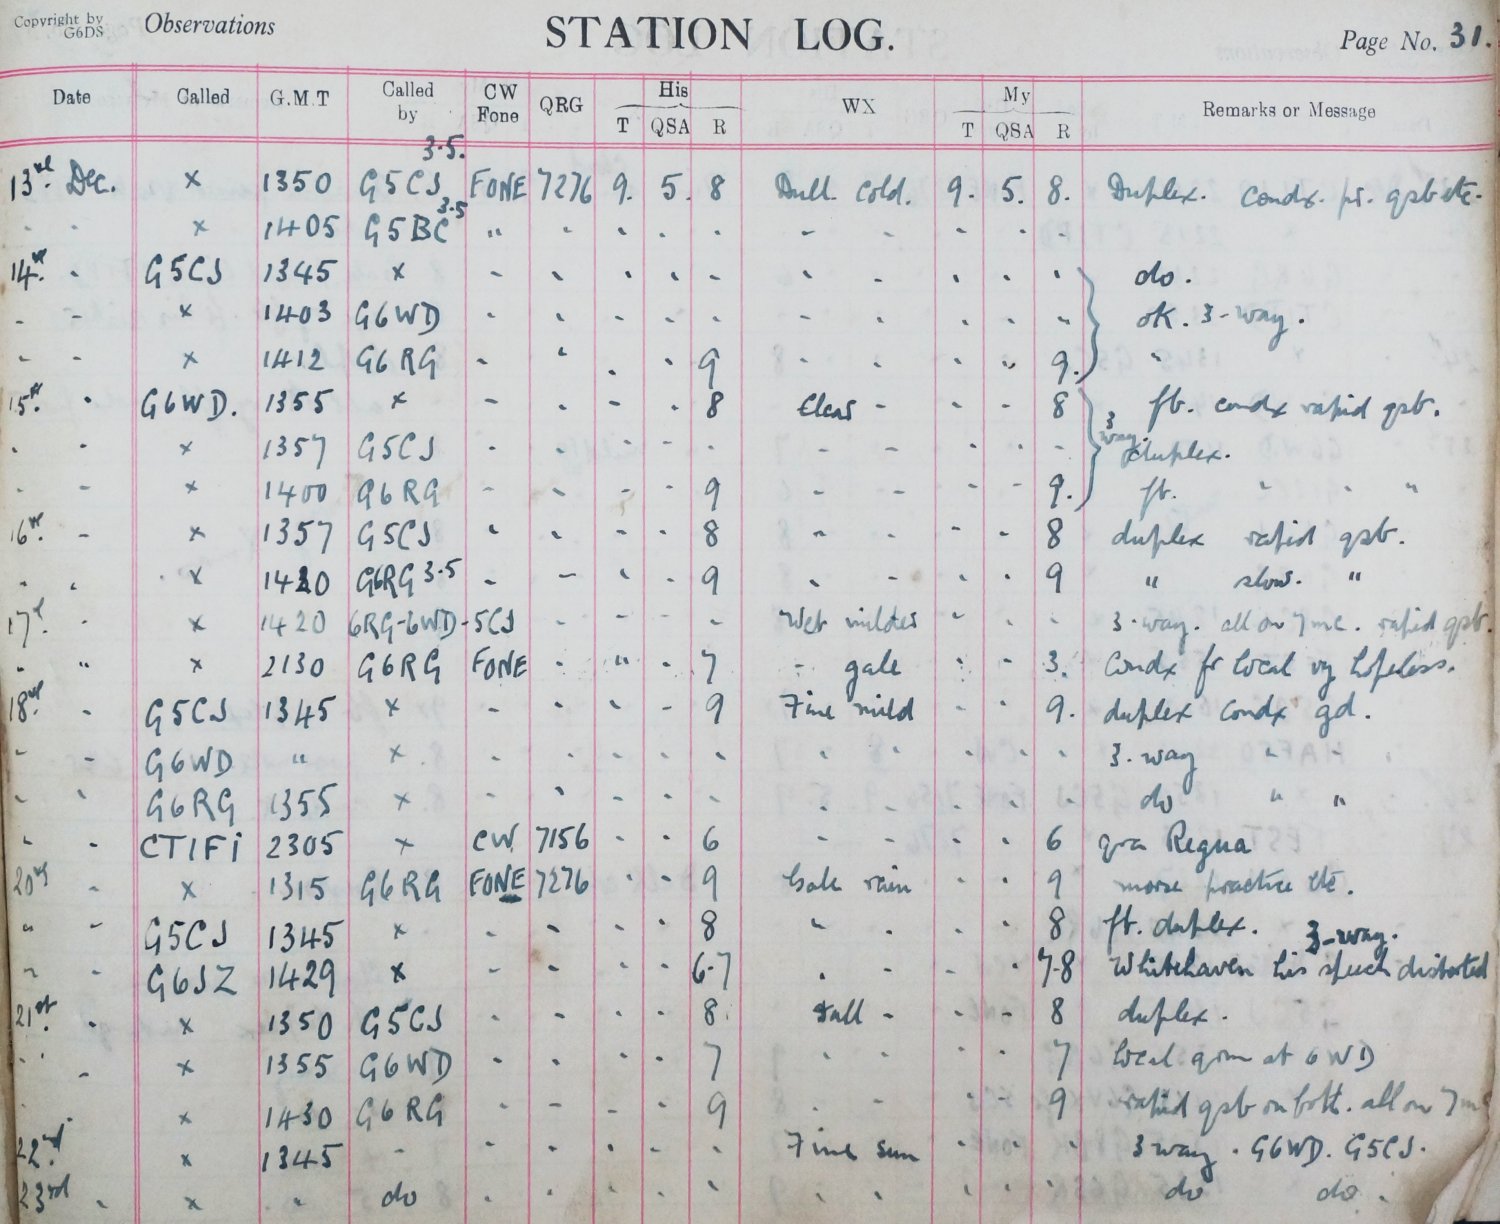 Copyright by G6DS Observations STATION LOG. Page No. 31.
Date Called G.M.T Called by CW Fone QRG His T QSA R WX My T QSA R Remarks or Message
3.5.
13 Dec. x 1350 G5CJ FONE 7276 9. 5. 8 Dull. cold. 9. 5. 8. Duplex. condx. pr. qsb etc.
- - x 1405 G5BC 3.5 " - - - - - - - - - -
14 - G5CJ 1345 x - - - - - - - - - - do.
- - x 1403 G6WD - - - - - - - - - - ok. 3-way.
- - x 1412 G6RG - - - - 9 - - - - 9. "
15 - G6WD. 1355 x - - - - 8 Clear - - - 8 3 way ft. condx rapid qsb.
- - x 1357 G5CJ - - - - - - - - - - duplex.
- - x 1400 G6RG - - - - 9 - - - - 9. ft. " - "
16 - x 1357 G5CJ - - - - 8 - - - - 8 duplex rapid qsb.
- - x 1420 G6RG 3.5 - - - - 9 - - - - 9 " slow. "
17 - x 1420 6RG-6WD-5CJ - - - - Wet milder - - - 3-way. all on 7mc. rapid qsb.
- " x 2130 G6RG FONE - " - 7 - gale - - 3. Condx fr local vy hopeless.
18 - G5CJ 1345 x - - - - 9 Fine mild - - 9. duplex condx gd.
- - G6WD " x - - - - - - - - - - 3-way - -
- - G6RG 1355 x - - - - - - - - - - do " "
- - CT1FI 2305 x CW 7156 - - 6 - - - - 6 qra Regua
20 - x 1315 G6RG FONE 7276 - - 9 Gale rain - - 9 morse practice etc.
" - G5CJ 1345 x - - - - 8 " - - - 8 ft. duplex. 3-way.
" - G6JZ 1429 x - - - - 6-7 - - - - 7-8 Whitehaven his speech distorted
21st - x 1350 G5CJ - - - - 8 Dull - - - 8 duplex.
- - x 1355 G6WD - - - - 7 - - - - 7 local qrm at 6WD
- - x 1430 G6RG - - - - 9 - - - - 9 rapid qsb on both. all on 7mc
22nd x 1345 - - - - - - Fine sun - - - 3 way. G6WD. G5CJ.
23rd - x " do - - - - - - - - - - do do.